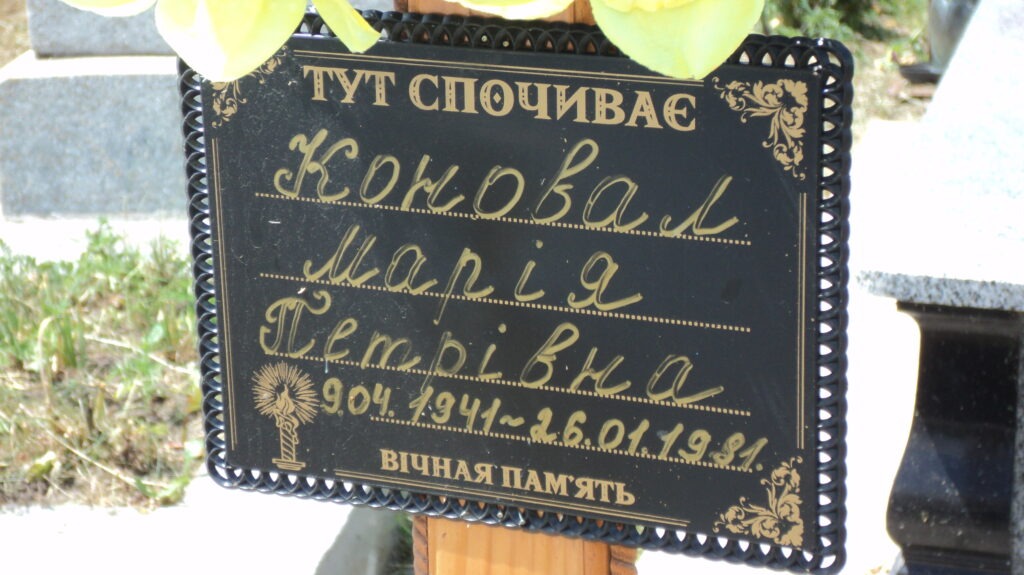 ТУТ СПОЧИВАЄ
Коновал
Марія
Петрівна
9.04.1941~26.01.1981.
ВІЧНАЯ ПАМ'ЯТЬ